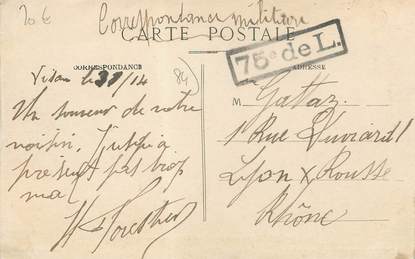 20 €
Correspondance militaire
CARTE POSTALE
75e de L.
CORRESPONDANCE
ADRESSE
Visan le /14
(84)
Un souvenir de votre
voisin. Jusqu'a
présent pas trop
mal
Forestier
M. Gattaz
1 Rue Duviard 1
Lyon X Rousse
Rhône